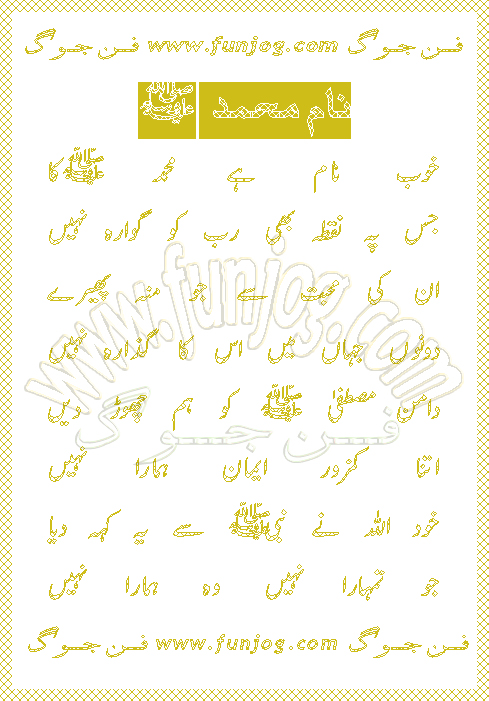 فن جوگ www.funjog.com فن جوگ
نام محمد ﷺ
خوب نام ہے محمد ﷺ کا
جس پہ نقطہ بھی رب کو گوارہ نہیں
ان کی محبت سے جو منہ پھیرے
دونوں جہاں میں اس کا گذارہ نہیں
دامن مصطفیٰ ﷺ کو ہم چھوڑ دیں
اتنا کمزور ایمان ہمارا نہیں
خود اللہ نے نبی ﷺ سے یہ کہہ دیا
جو تمہارا نہیں وہ ہمارا نہیں
فن جوگ www.funjog.com فن جوگ
www.funjog.com
فن جوگ